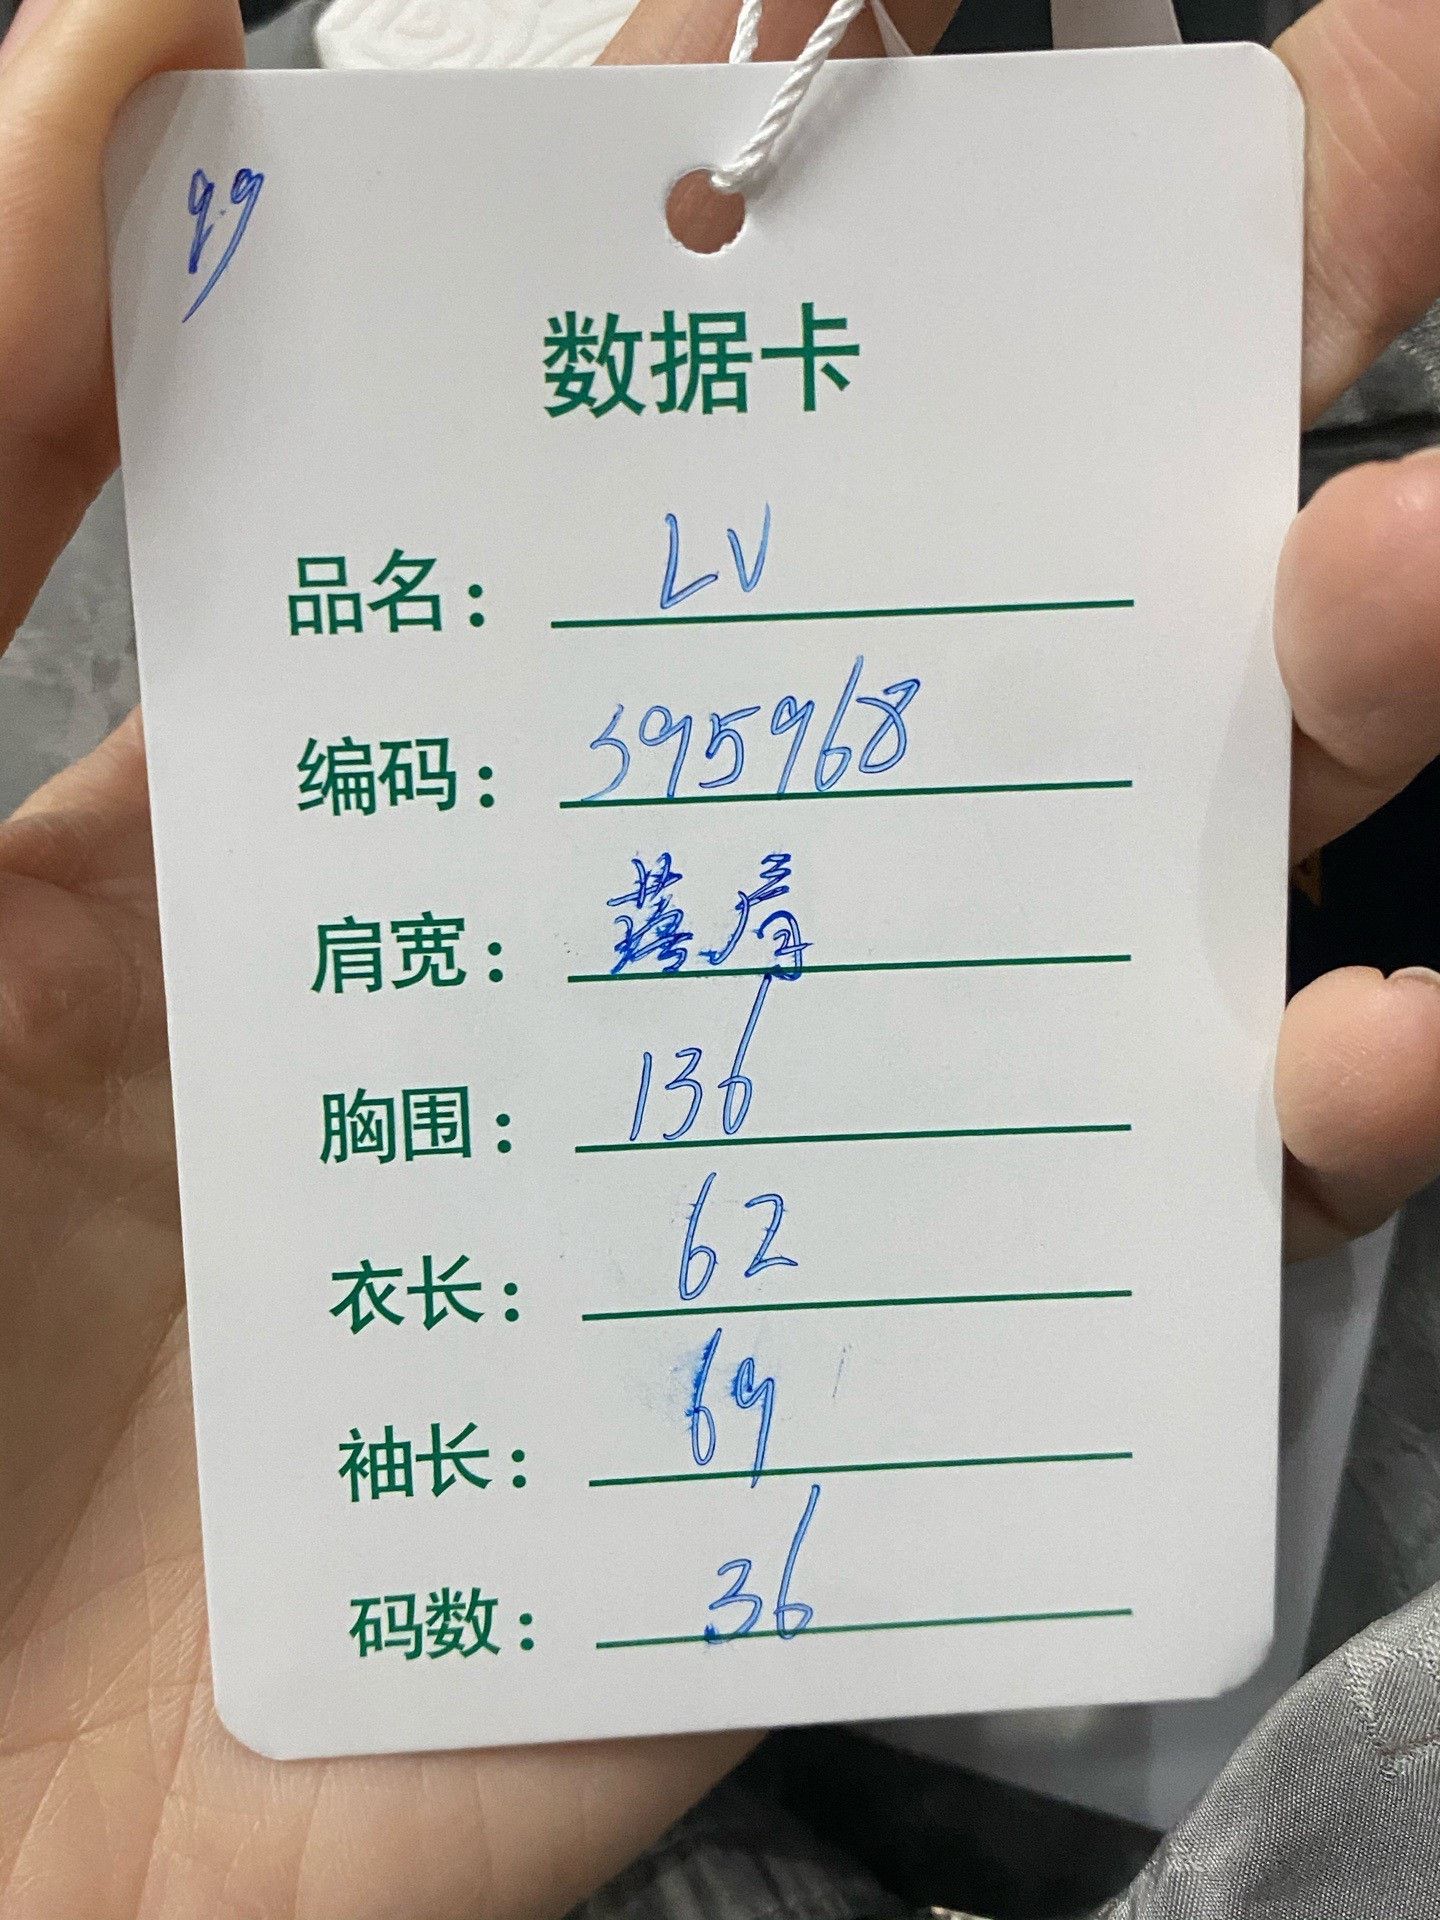 9.9
数据卡
品名： LV
编码： 395968
肩宽： 落肩
胸围： 136
衣长： 62
袖长： 69
码数： 36